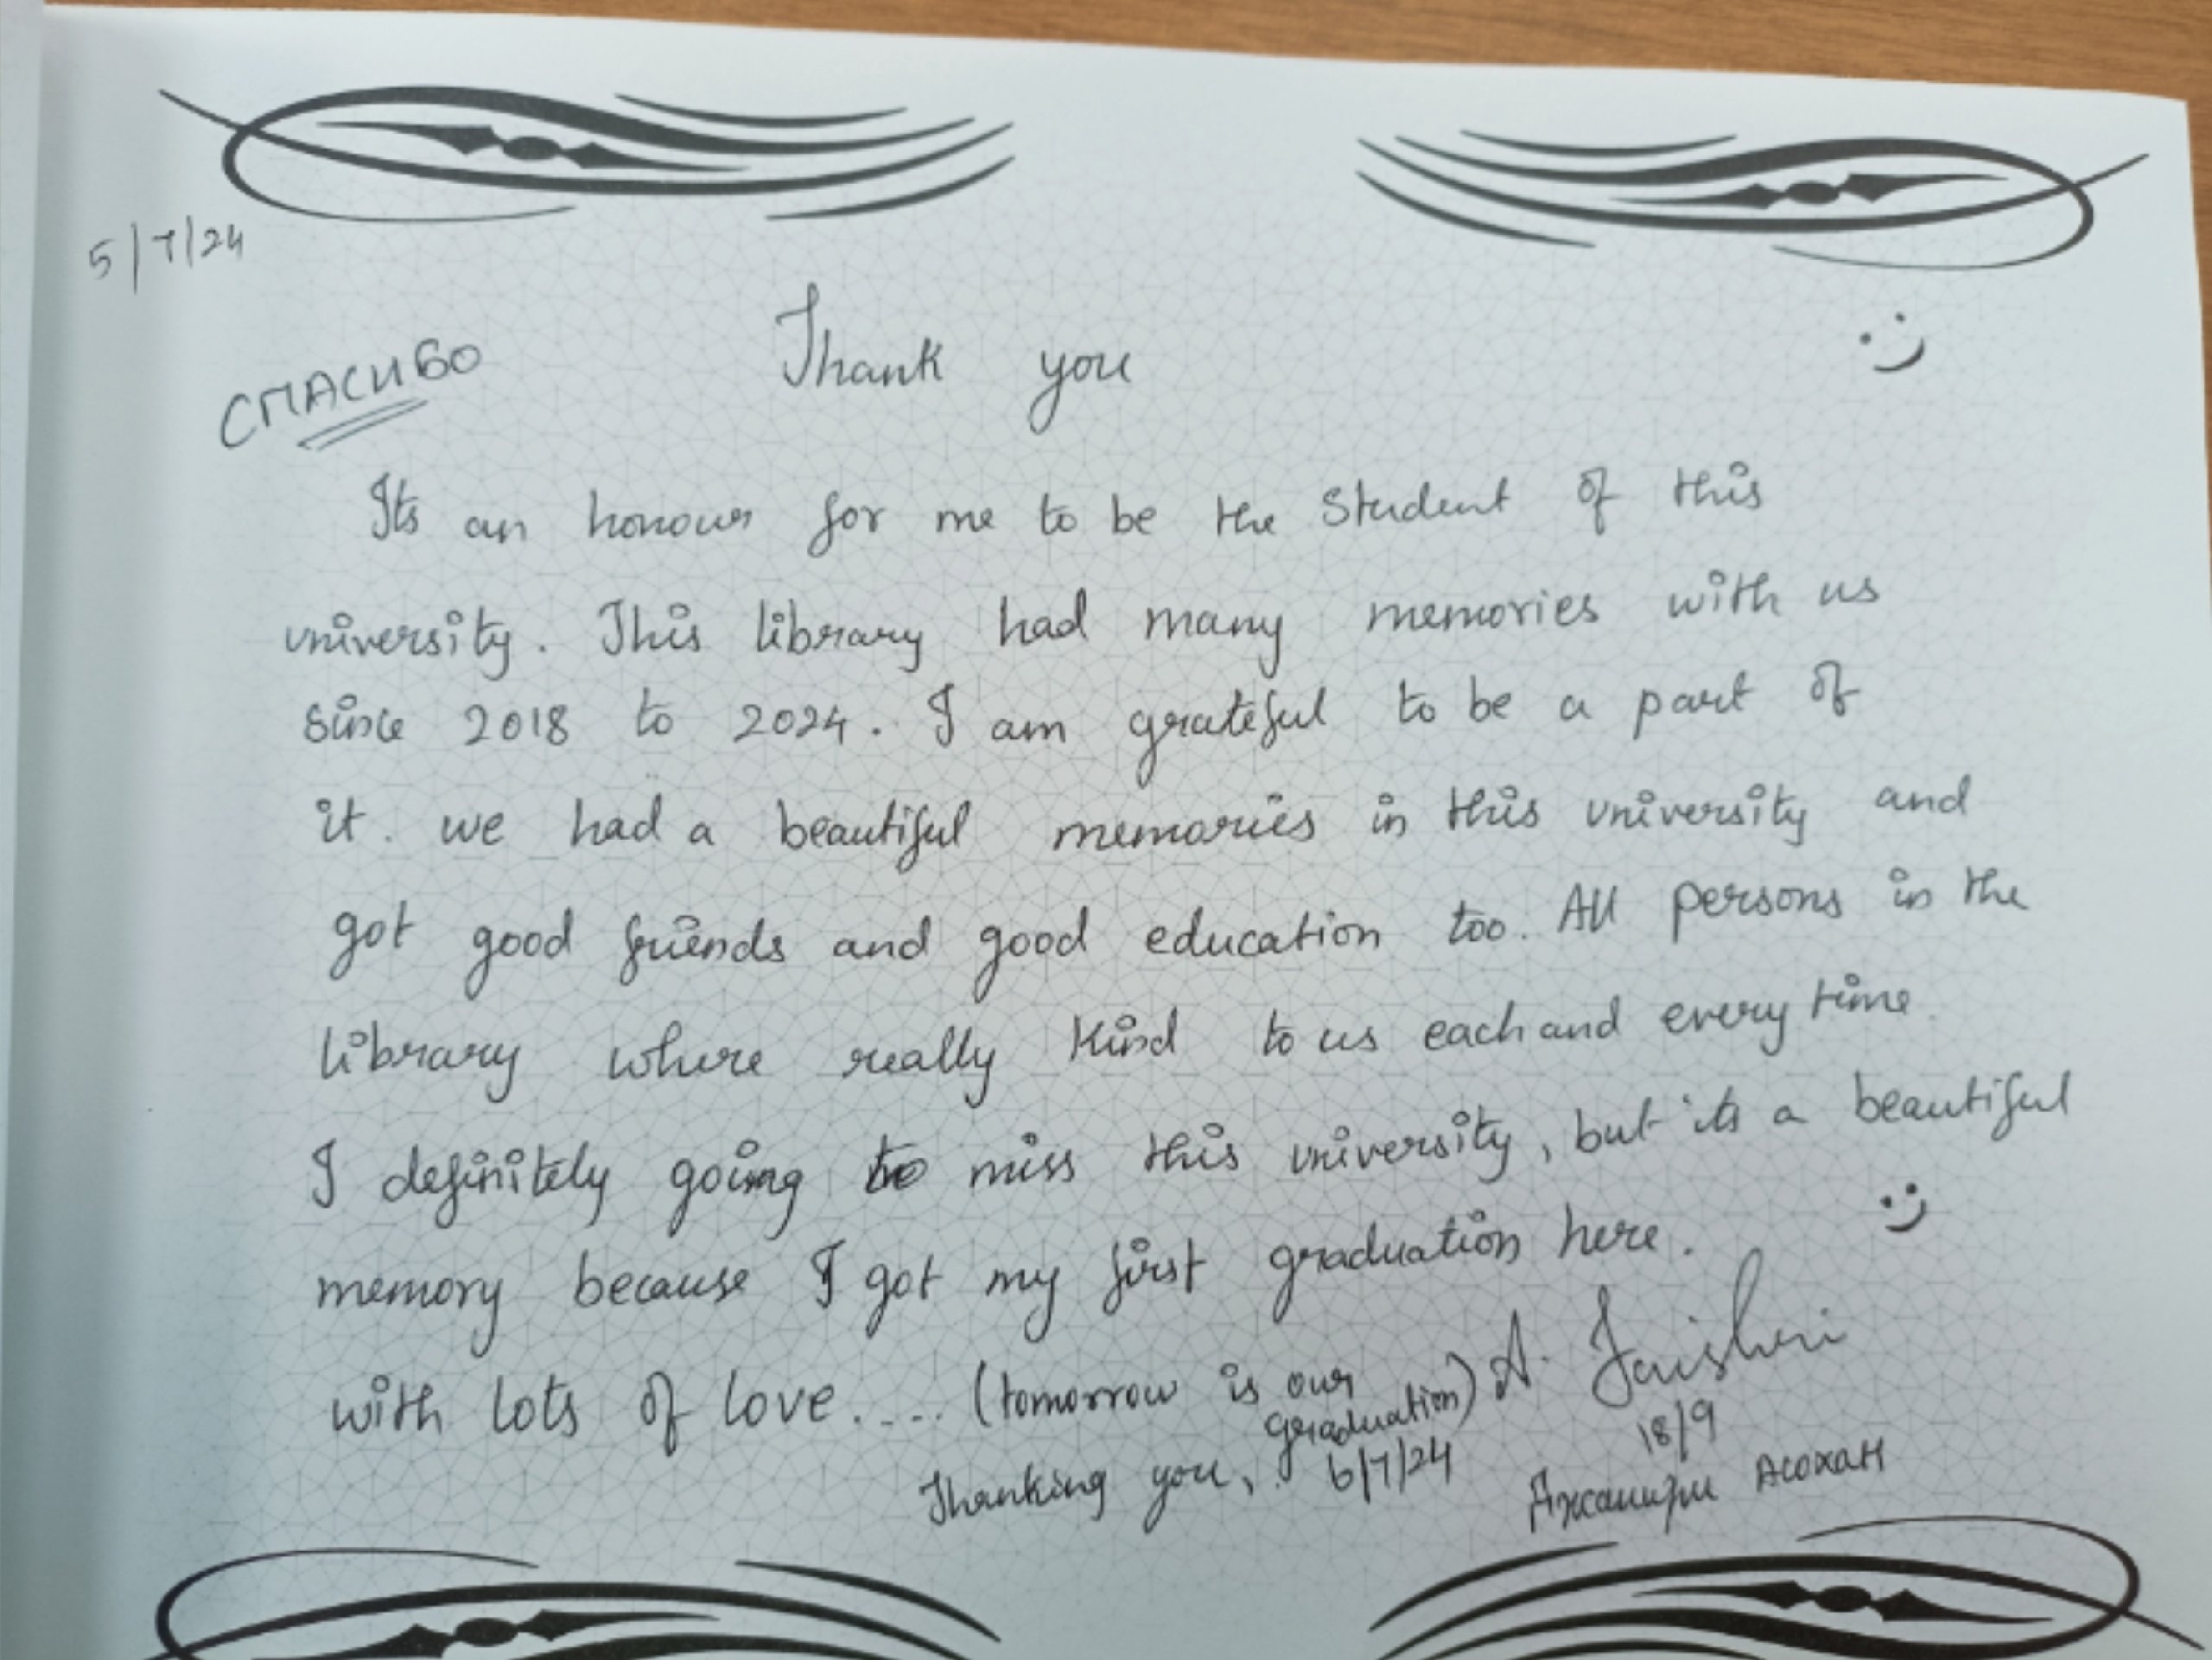 5/7/24
Thank you :)
СПАСИБО
Its an honour for me to be the Student of this
university. This library had many memories with us
since 2018 to 2024. I am grateful to be a part of
it. we had a beautiful memories in this university and
got good friends and good education too. All persons in the
library where really kind to us each and every time.
I definitely going to miss this university, but its a beautiful
memory because I got my first graduation here. :)
with lots of love..... (tomorrow is our
graduation) A. Jaishri
18/9
Thanking you, 6/7/24
Джаишри Асохан